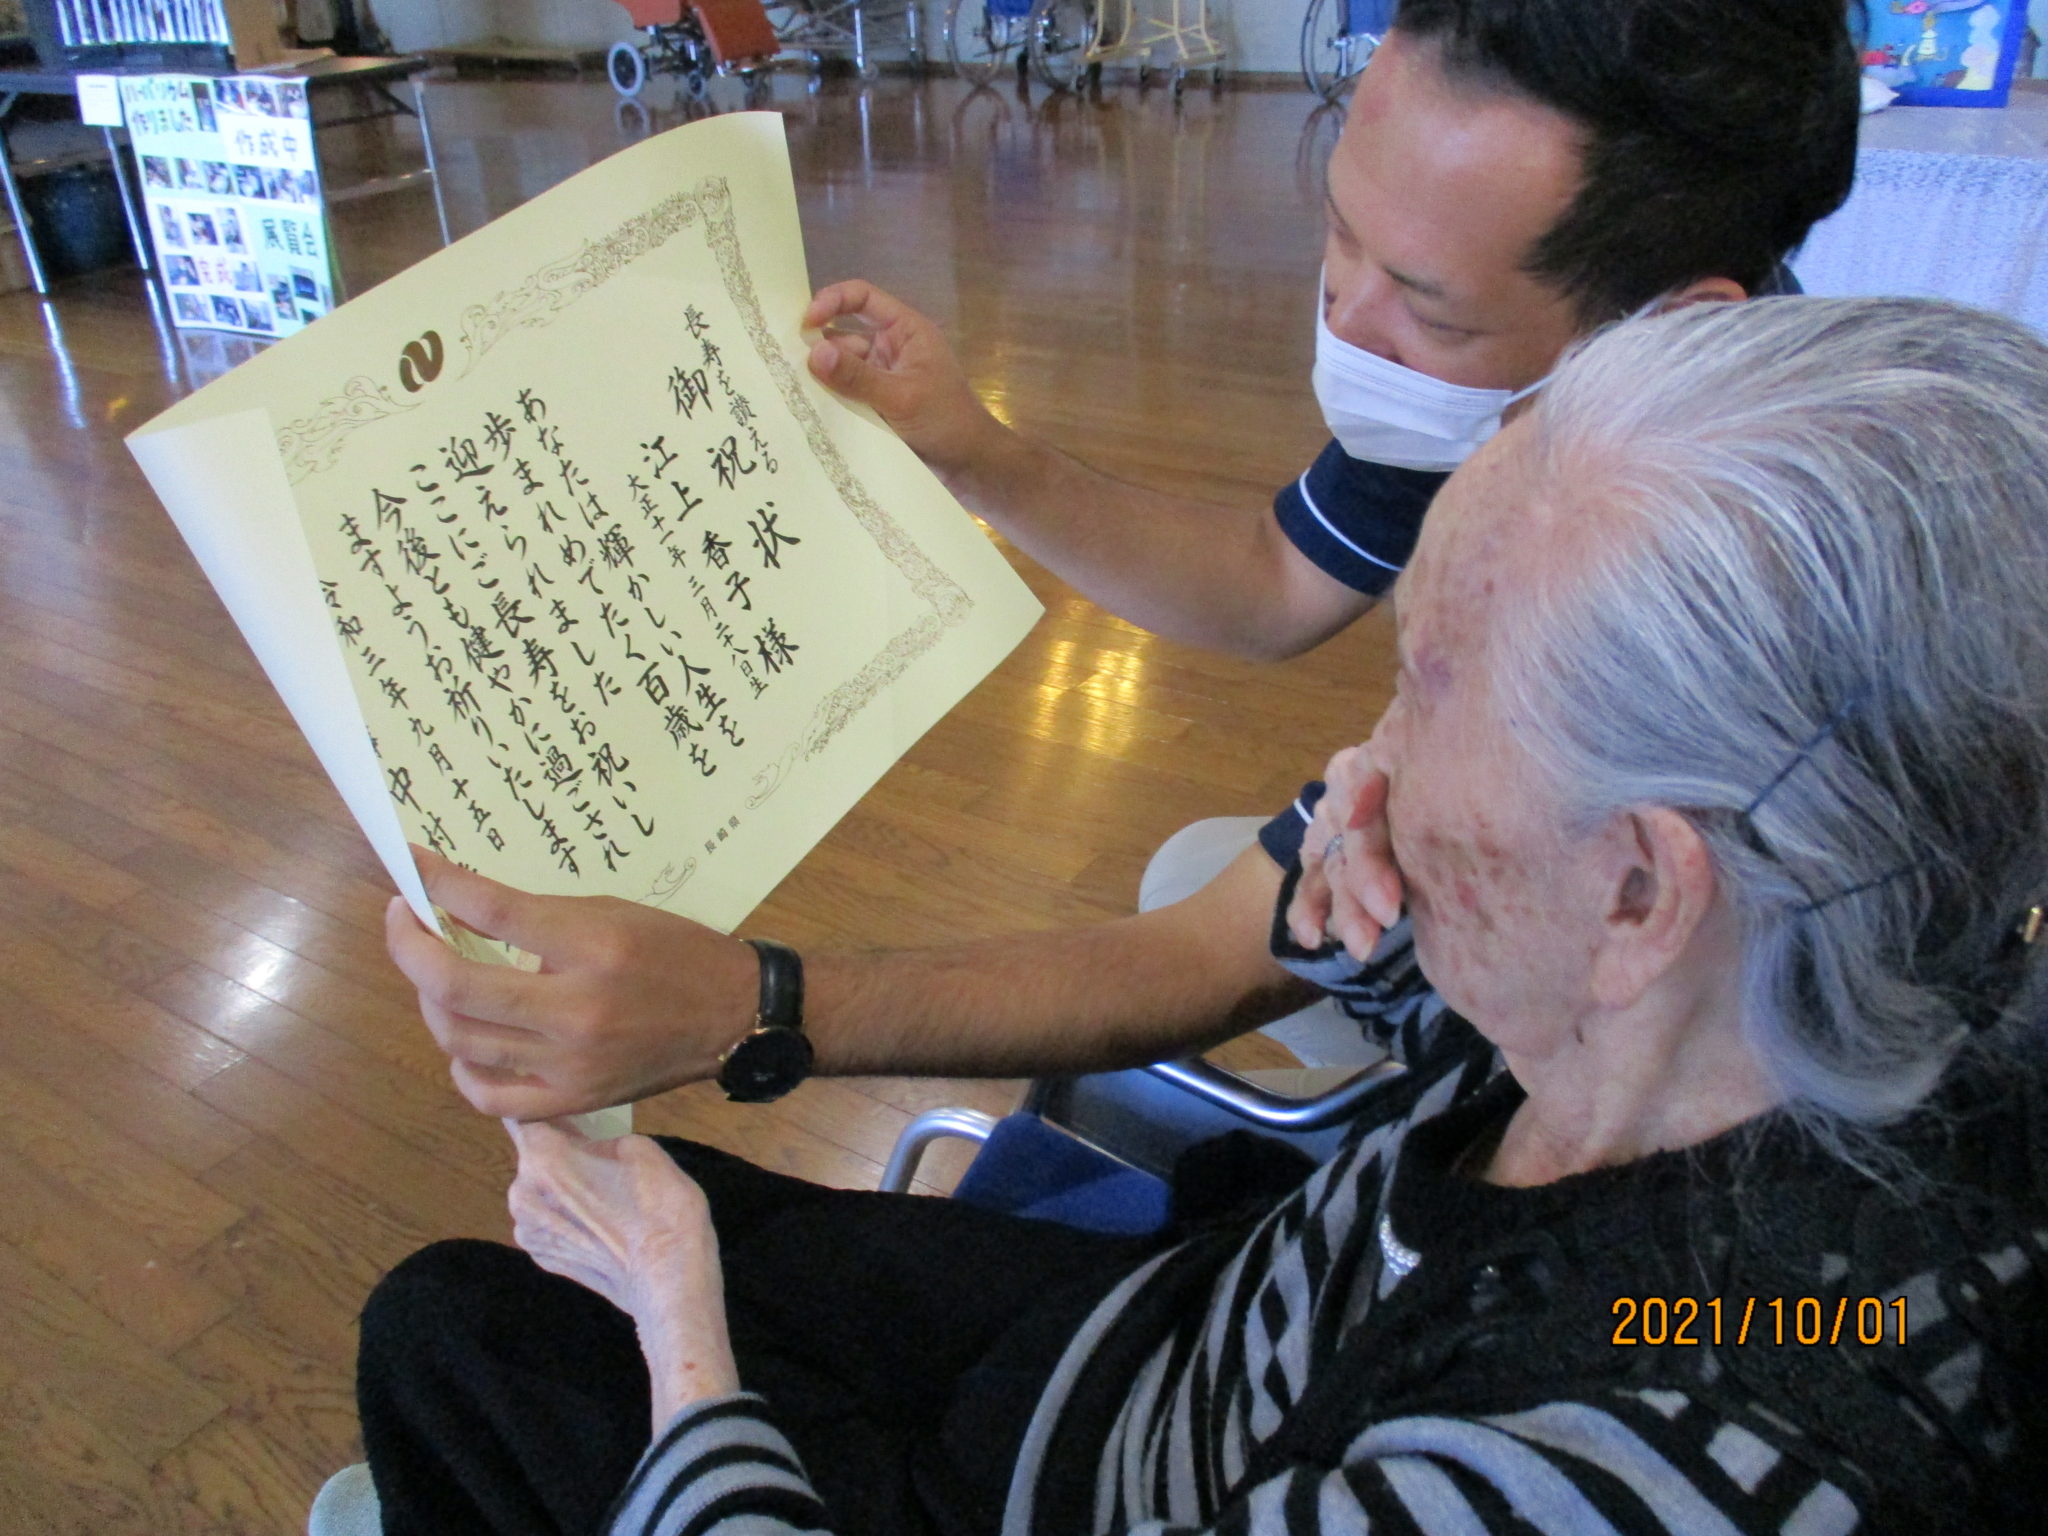 長寿を讃える
御祝状
江上香子様
大正十一年三月二十八日生
あなたは輝かしい人生を
歩まれめでたく百歳を
迎えられました
ここにご長寿をお祝いし
今後とも健やかに過ごされ
ますようお祈りいたします
令和三年九月十五日
中村
長崎県
ハーバリウム
作りました
作成中
展覧会
完成
2021/10/01